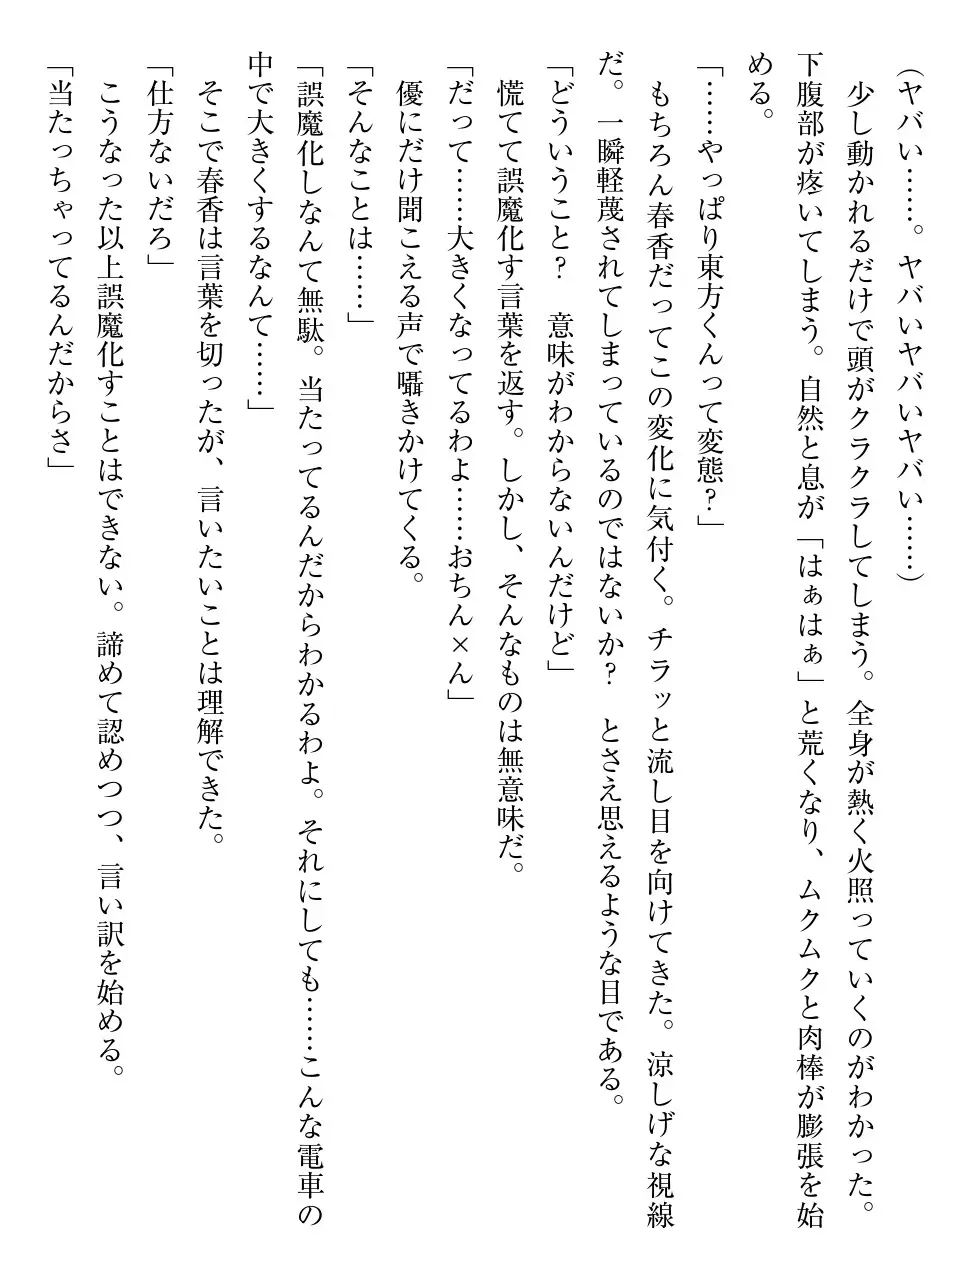 (ヤバい……。ヤバいヤバいヤバい……)
　少し動かれるだけで頭がクラクラしてしまう。全身が熱く火照っていくのがわかった。
下腹部が疼いてしまう。自然と息が「はぁはぁ」と荒くなり、ムクムクと肉棒が膨張を始
める。
「……やっぱり東方くんって変態?」
　もちろん春香だってこの変化に気付く。チラッと流し目を向けてきた。涼しげな視線
だ。一瞬軽蔑されてしまっているのではないか?　とさえ思えるような目である。
「どういうこと?　意味がわからないんだけど」
　慌てて誤魔化す言葉を返す。しかし、そんなものは無意味だ。
「だって……大きくなってるわよ……おちん×ん」
　優にだけ聞こえる声で囁きかけてくる。
「そんなことは……」
「誤魔化しなんて無駄。当たってるんだからわかるわよ。それにしても……こんな電車の
中で大きくするなんて……」
　そこで春香は言葉を切ったが、言いたいことは理解できた。
「仕方ないだろ」
　こうなった以上誤魔化すことはできない。諦めて認めつつ、言い訳を始める。
「当たっちゃってるんだからさ」